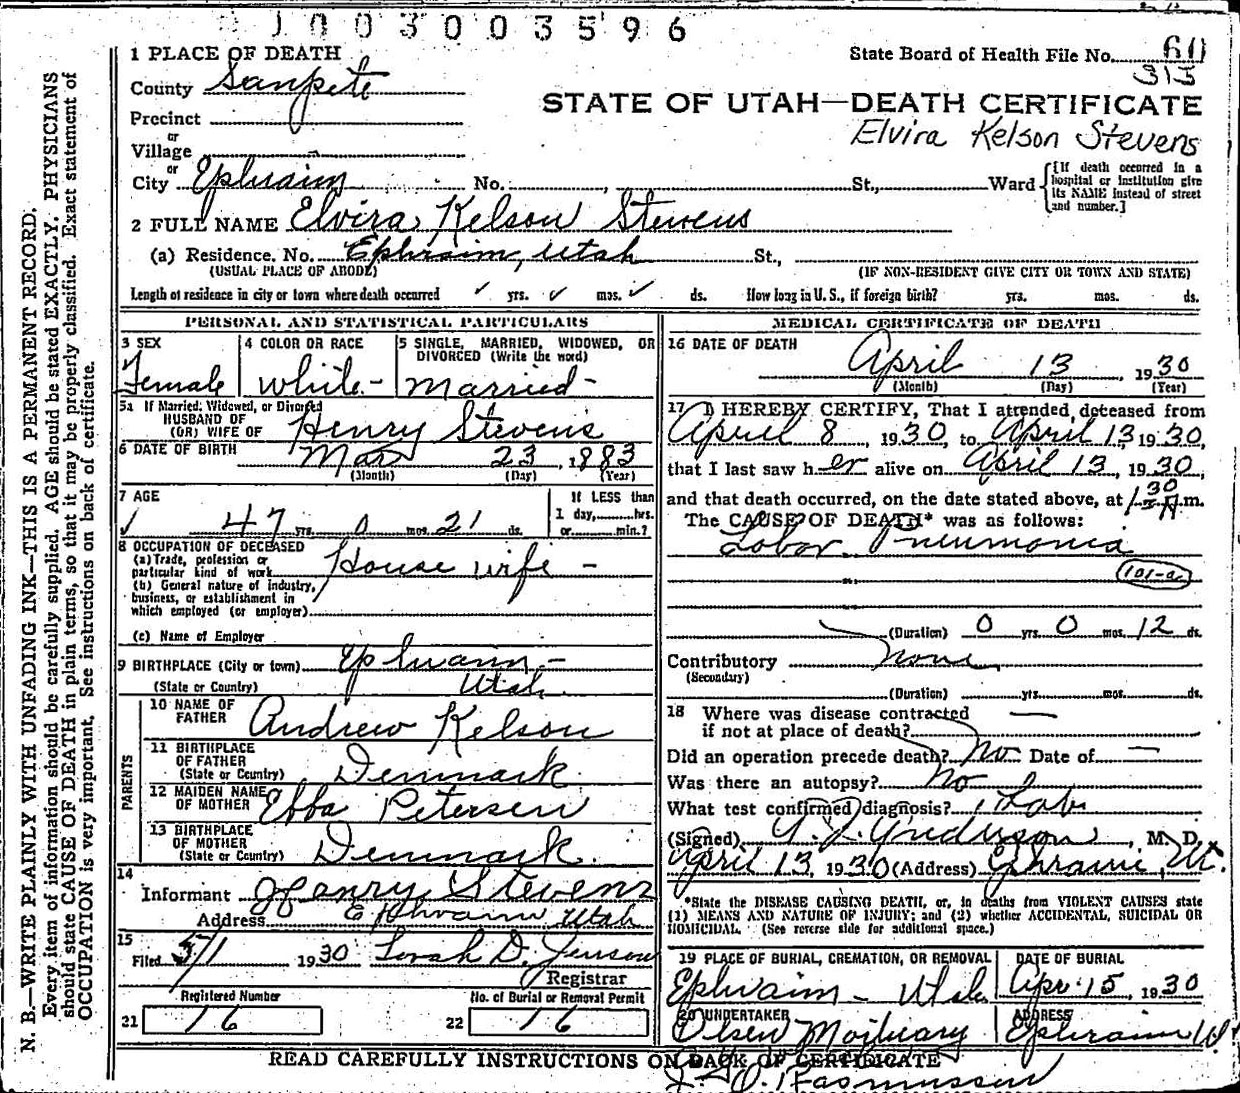 1003003596
1 PLACE OF DEATH
State Board of Health File No. 60
313
County Sanpete
STATE OF UTAH—DEATH CERTIFICATE
Precinct
Elvira Kelson Stevens
or
Village
or
City Ephraim No. , St., Ward
[If death occurred in a hospital or institution give its NAME instead of street and number.]
2 FULL NAME Elvira Kelson Stevens
(a) Residence. No. Ephraim, Utah St.,
(USUAL PLACE OF ABODE) (IF NON-RESIDENT GIVE CITY OR TOWN AND STATE)
Length of residence in city or town where death occurred ✓ yrs. ✓ mos. ✓ ds. How long in U. S., if foreign birth? yrs. mos. ds.
PERSONAL AND STATISTICAL PARTICULARS
3 SEX
Female
4 COLOR OR RACE
White-
5 SINGLE, MARRIED, WIDOWED, OR DIVORCED (Write the word)
Married-
5a If Married, Widowed, or Divorced
HUSBAND OF
(OR) WIFE OF Henry Stevens
6 DATE OF BIRTH Mar 23, 1883
(Month) (Day) (Year)
7 AGE
✓ 47 yrs. 0 mos. 21 ds.
If LESS than
1 day, hrs.
or min.?
8 OCCUPATION OF DECEASED
(a) Trade, profession or
particular kind of work House wife -
(b) General nature of industry,
business, or establishment in
which employed (or employer)
(c) Name of Employer
9 BIRTHPLACE (City or town) Ephraim -
(State or Country) Utah
PARENTS
10 NAME OF
FATHER Andrew Kelson
11 BIRTHPLACE
OF FATHER
(State or Country) Denmark.
12 MAIDEN NAME
OF MOTHER Ebba Petersen
13 BIRTHPLACE
OF MOTHER
(State or Country) Denmark.
14
Informant Henry Stevens
Address Ephraim Utah
15
Filed 5/1 1930 Sorah D. Jenson
Registrar
Registered Number
21 16
No. of Burial or Removal Permit
22 16
MEDICAL CERTIFICATE OF DEATH
16 DATE OF DEATH
April 13 1930
(Month) (Day) (Year)
17 I HEREBY CERTIFY, That I attended deceased from
April 8, 1930, to April 13 1930,
that I last saw her alive on April 13, 1930,
and that death occurred, on the date stated above, at 1 30 A.m.
The CAUSE OF DEATH* was as follows:
Lobar Pneumonia
101-a
(Duration) 0 yrs. 0 mos. 12 ds.
Contributory None
(Secondary)
(Duration) yrs. mos. ds.
18 Where was disease contracted
if not at place of death? —
Did an operation precede death? No Date of —
Was there an autopsy? No
What test confirmed diagnosis? Lab
(Signed) Anderson, M. D.
April 13, 1930 (Address) Ephraim, Ut.
*State the DISEASE CAUSING DEATH, or, in deaths from VIOLENT CAUSES state
(1) MEANS AND NATURE OF INJURY; and (2) whether ACCIDENTAL, SUICIDAL OR
HOMICIDAL. (See reverse side for additional space.)
19 PLACE OF BURIAL, CREMATION, OR REMOVAL
Ephraim - Utah
DATE OF BURIAL
Apr. 15, 1930
20 UNDERTAKER
Olsen Mortuary
ADDRESS
Ephraim Ut
READ CAREFULLY INSTRUCTIONS ON BACK OF CERTIFICATE
Rasmussen
N. B.—WRITE PLAINLY WITH UNFADING INK—THIS IS A PERMANENT RECORD.
Every item of information should be carefully supplied. AGE should be stated EXACTLY. PHYSICIANS
should state CAUSE OF DEATH in plain terms, so that it may be properly classified. Exact statement of
OCCUPATION is very important. See instructions on back of certificate.